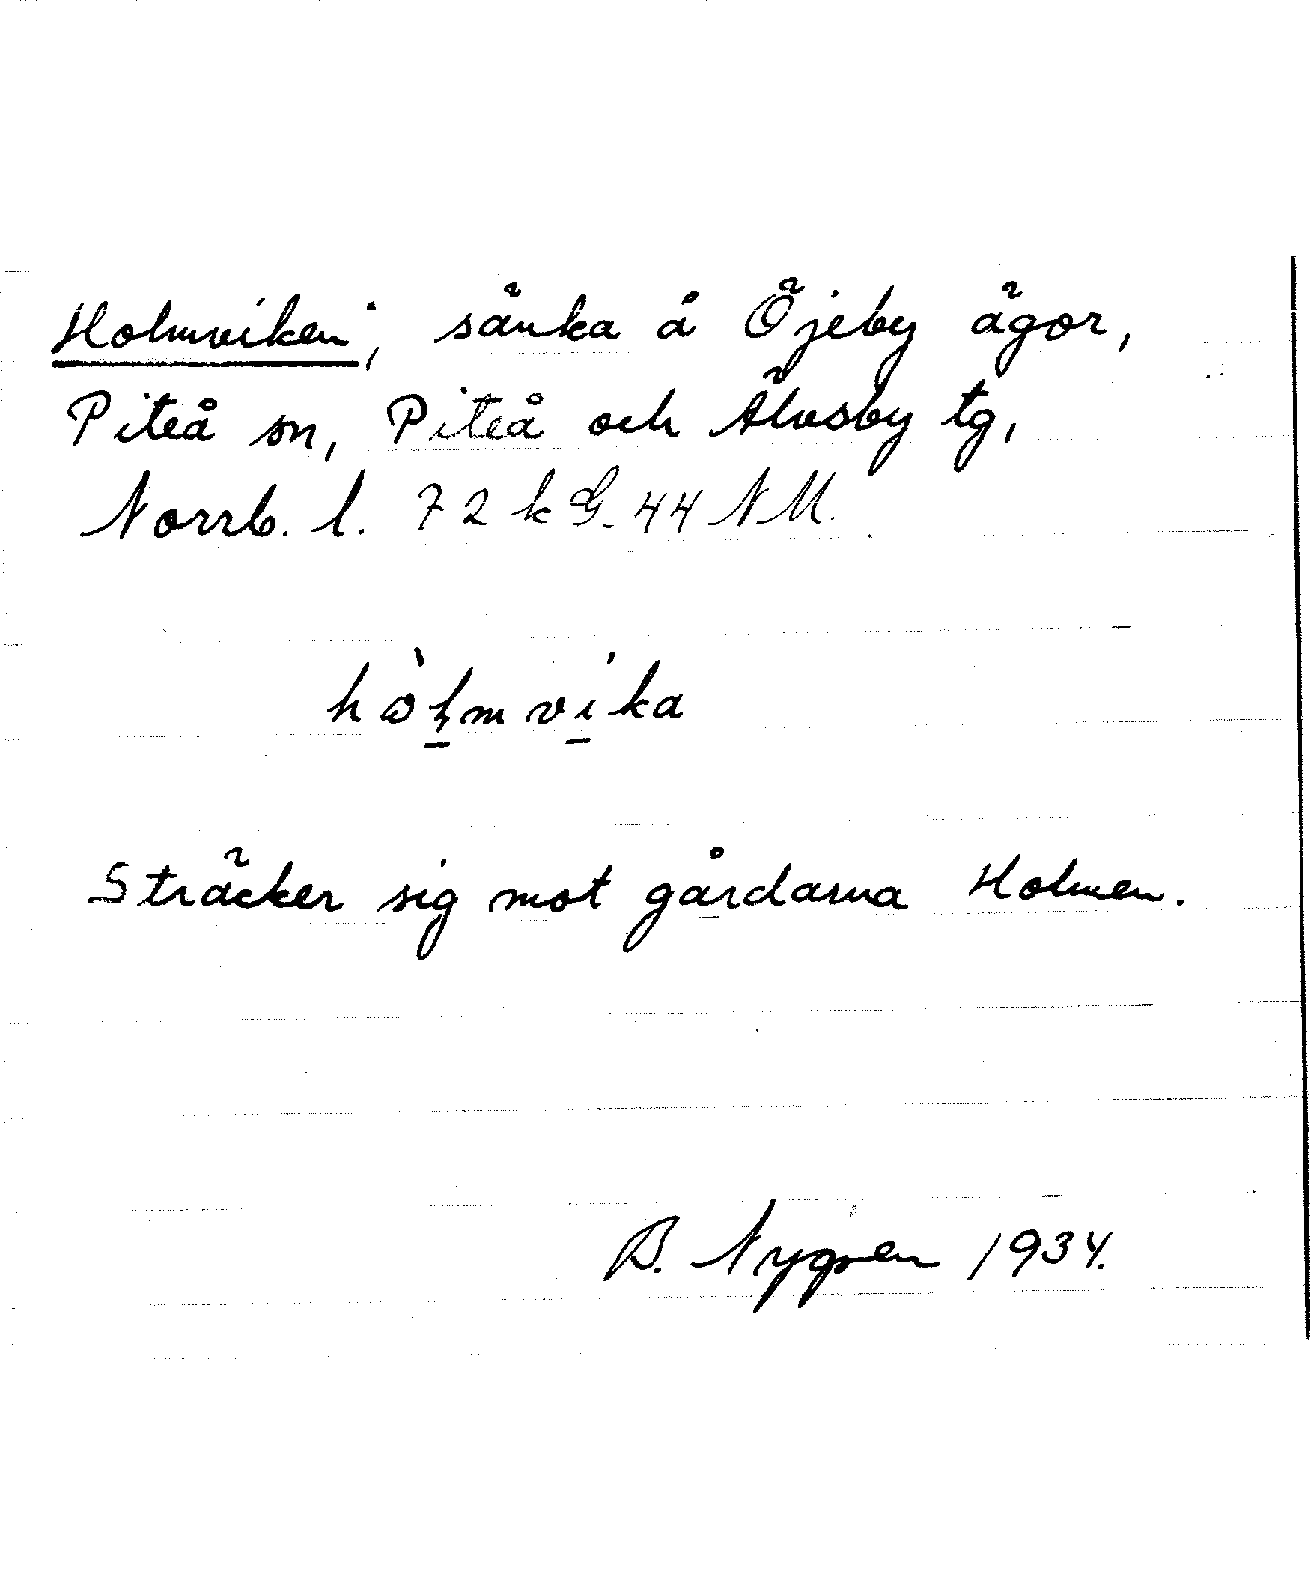 Holmviken; sänka å Öjeby ägor,
Piteå sn, Piteå och Älvsby tg,
Norrb. l. 72 k G. 44 NM.
hòl̠mvi̠ka
Sträcker sig mot gårdarna Holmen.
B. Nygren 1934.